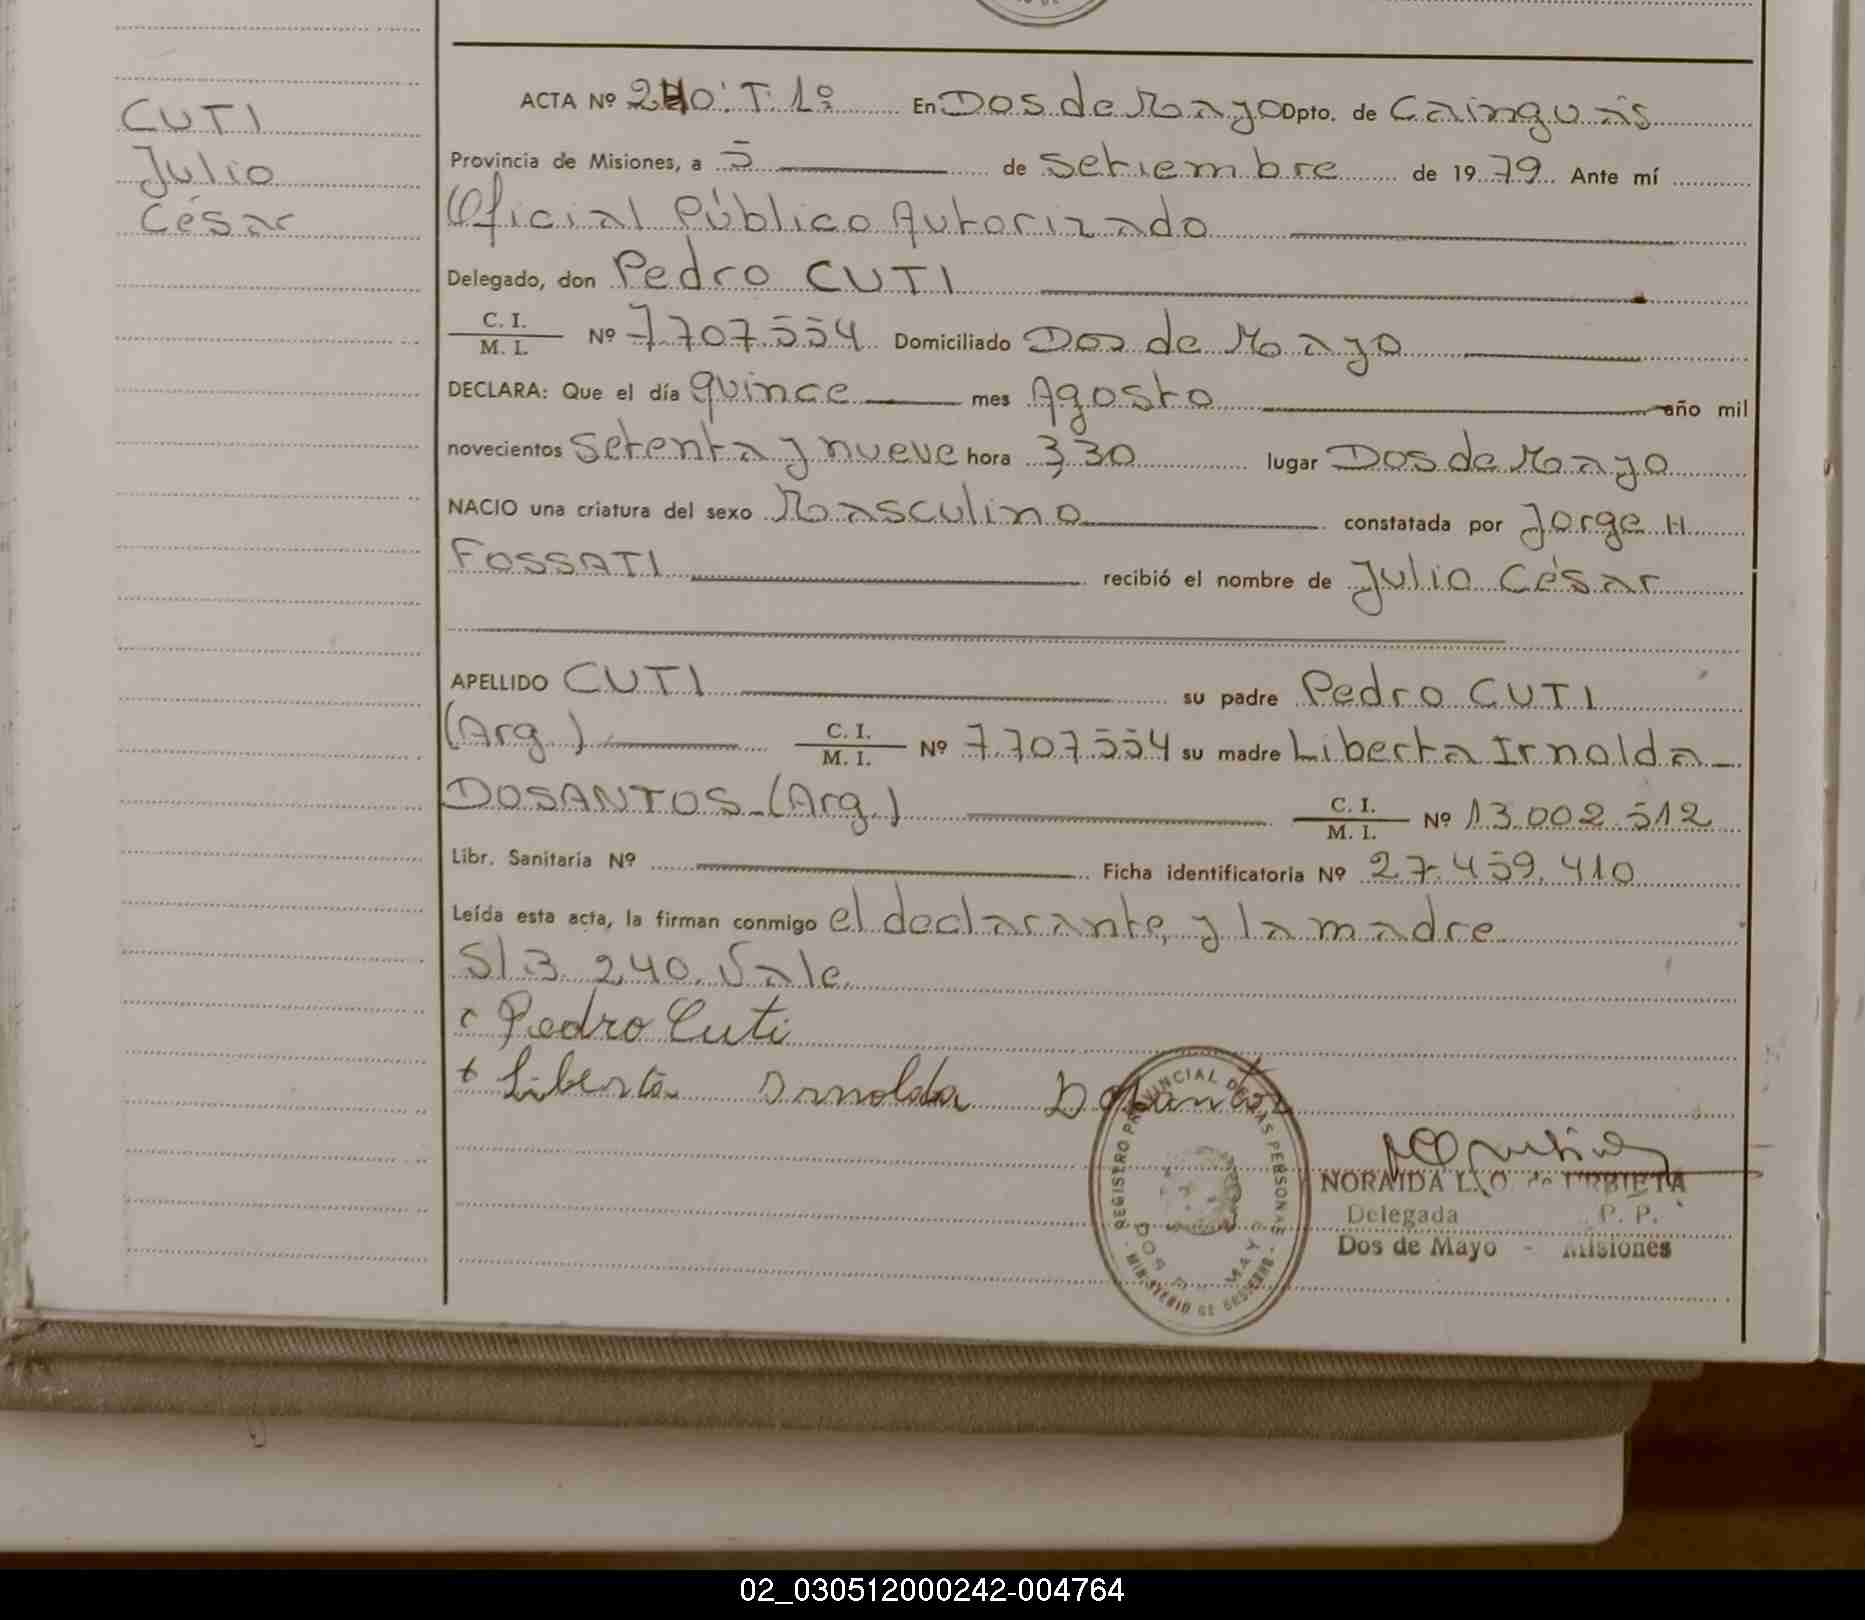 CUTI
Julio
César
ACTA Nº 240: T: 1º En Dos de Mayo Dpto. de Cainguás
Provincia de Misiones, a 5 de Setiembre de 1979. Ante mí
Oficial Público Autorizado
Delegado, don Pedro CUTI
C. I.
M. I. Nº 7.707.554 Domiciliado Dos de Mayo
DECLARA: Que el día quince mes Agosto año mil
novecientos Setenta y nueve hora 3,30 lugar Dos de Mayo
NACIO una criatura del sexo Masculino constatada por Jorge H
FOSSATI recibió el nombre de Julio César
APELLIDO CUTI su padre Pedro CUTI
(Arg.) C. I.
M. I. Nº 7.707.554 su madre Liberta Irnolda
DOSANTOS-(Arg.) C. I.
M. I. Nº 13.002.512
Libr. Sanitaria Nº Ficha identificatoria Nº 27.459.410
Leída esta acta, la firman conmigo el declarante, y la madre
S/B. 240. Vale.
Pedro Cuti
Liberta Irnolda Dosantos
REGISTRO PROVINCIAL DE LAS PERSONAS
DOS DE MAYO
MINISTERIO DE GOBIERNO
NORAIDA L. O. de URBIETA
Delegada P. P.
Dos de Mayo - Misiones
02_030512000242-004764